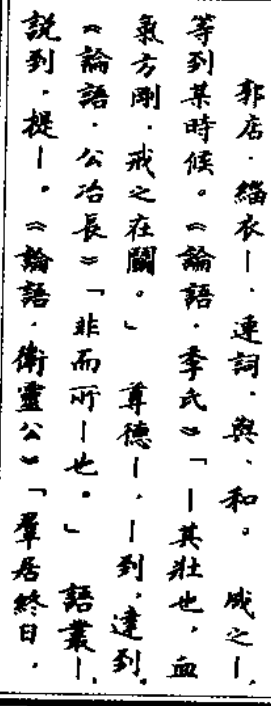 郭店·緇衣｜，連詞，與、和。 成之｜，
等到某時候。《論語·季氏》「｜其壯也，血
氣方剛，戒之在鬭。」 尊德｜，｜到，達到。
《論語·公冶長》「非而所｜也。」 語叢｜，
説到，提｜。《論語·衛靈公》「羣居終日，